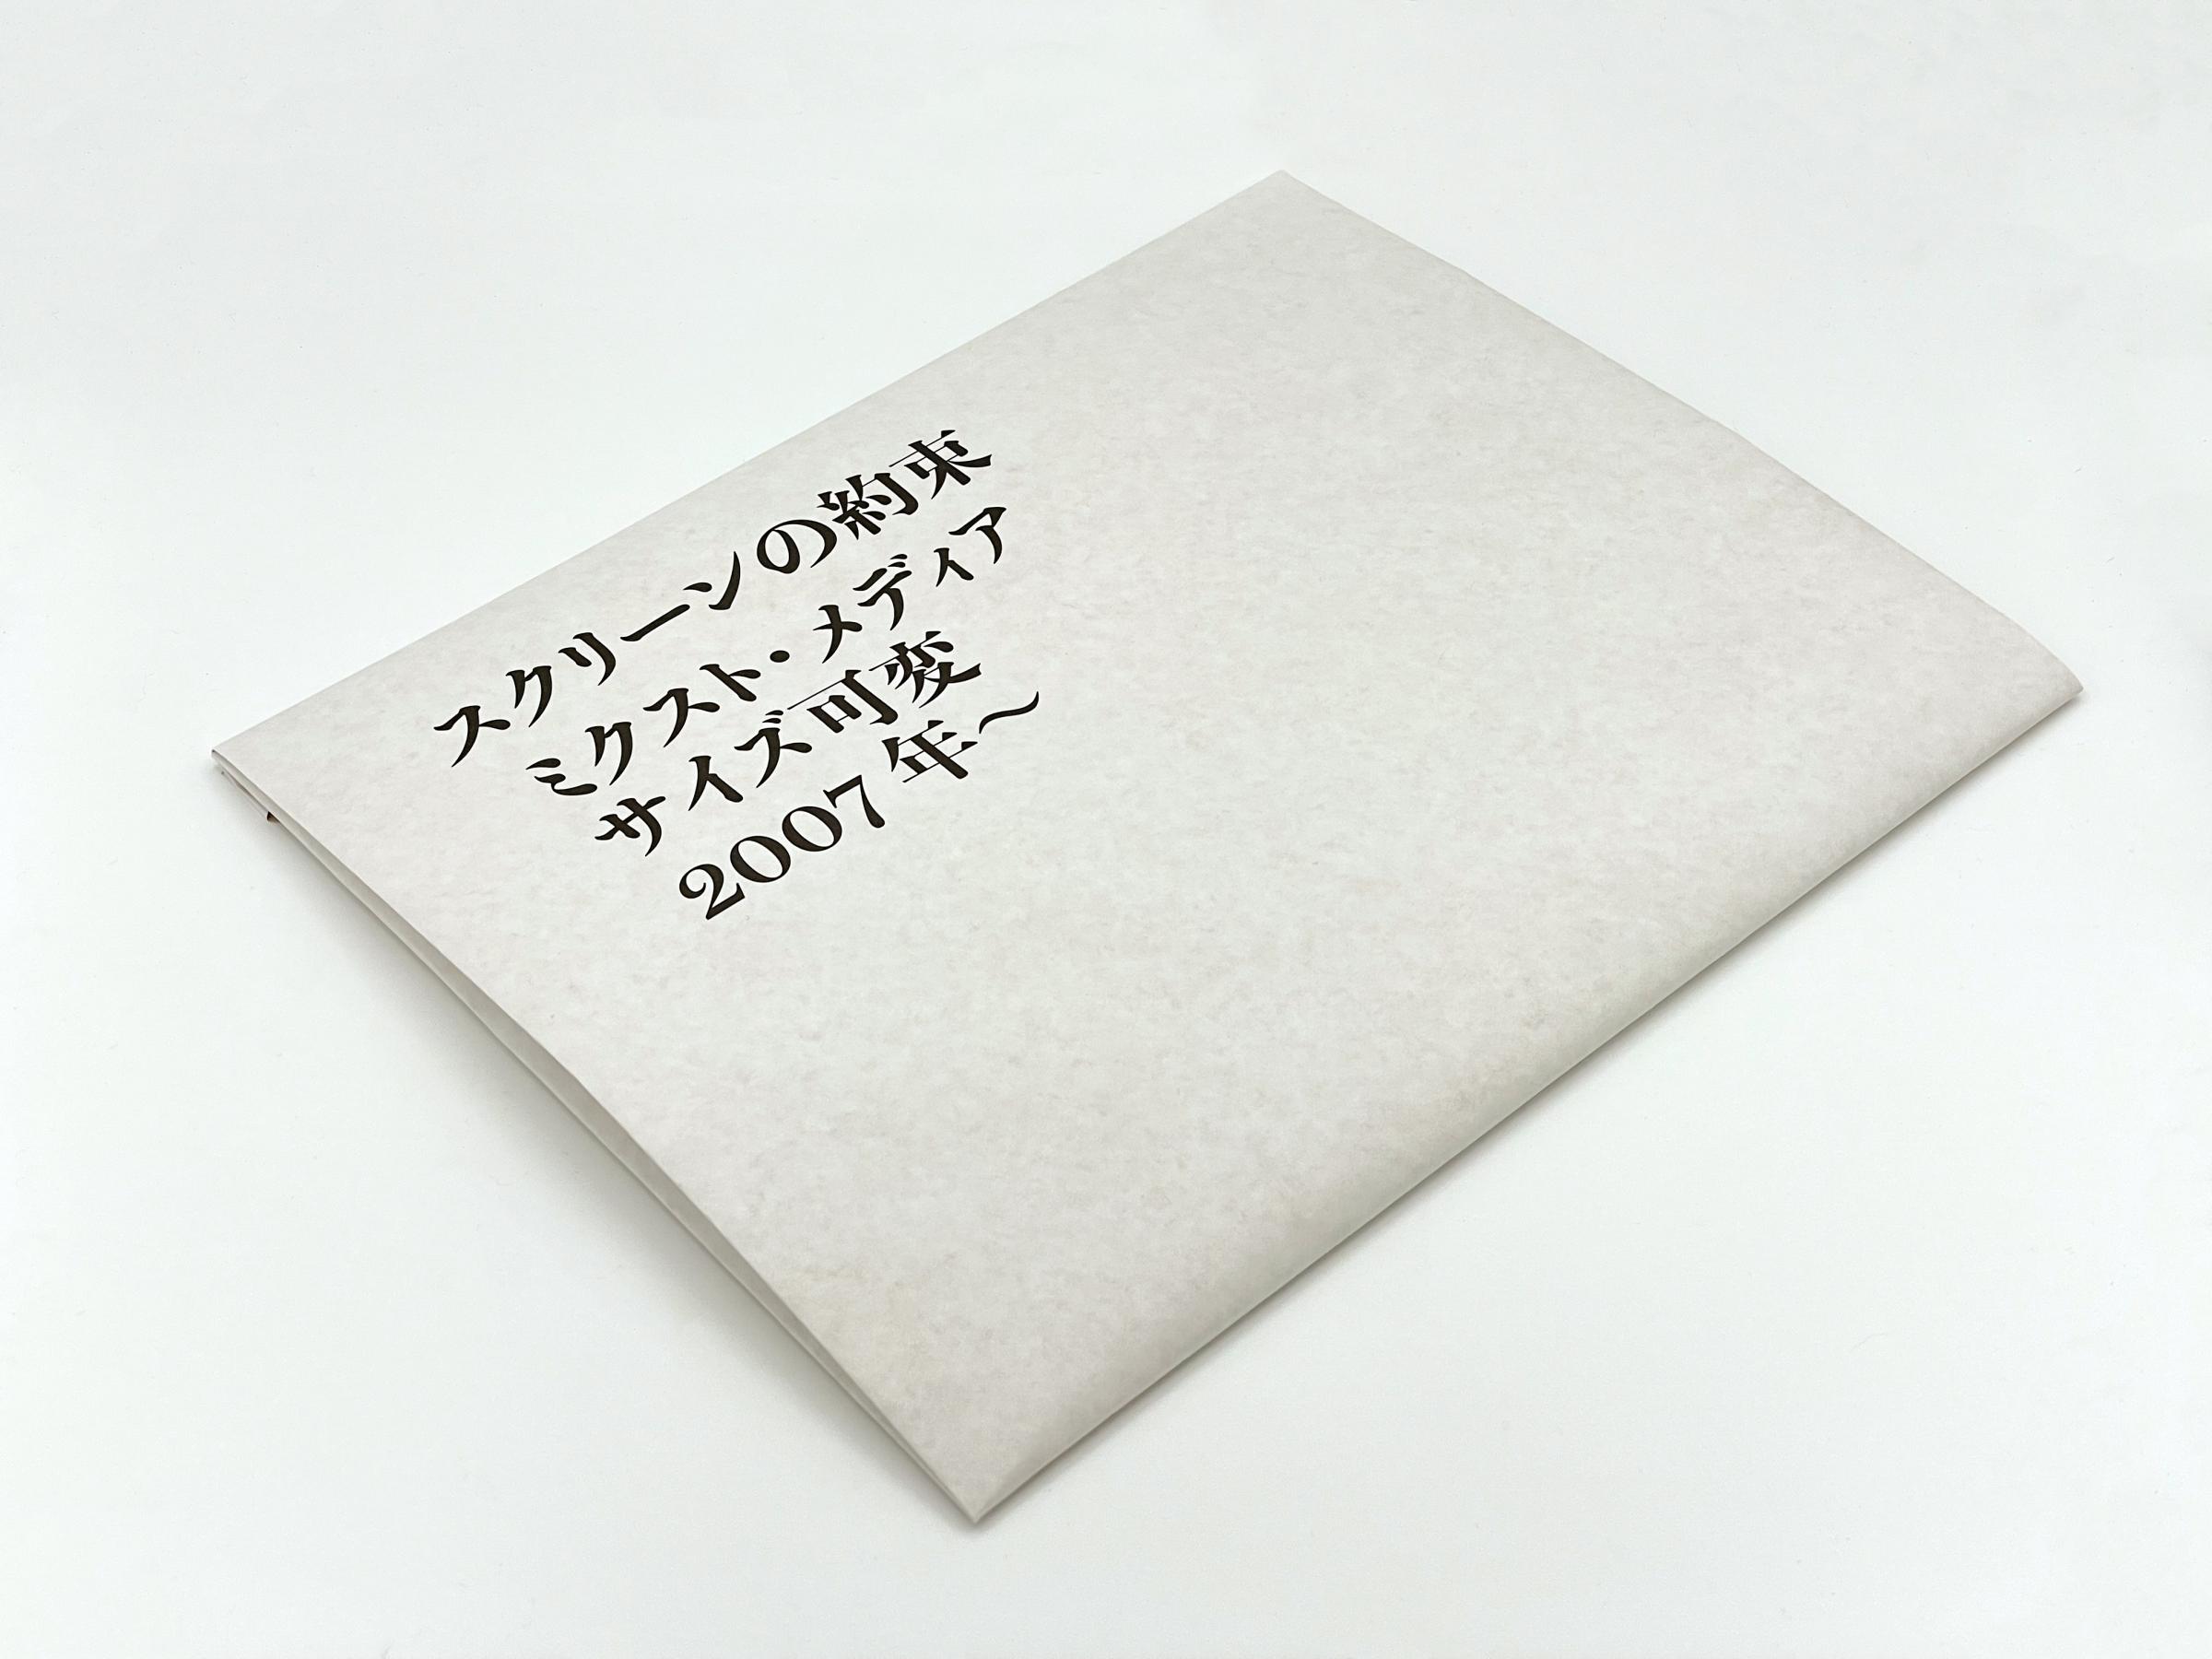 スクリーンの約束
ミクスト・メディア
サイズ可変
2007年〜